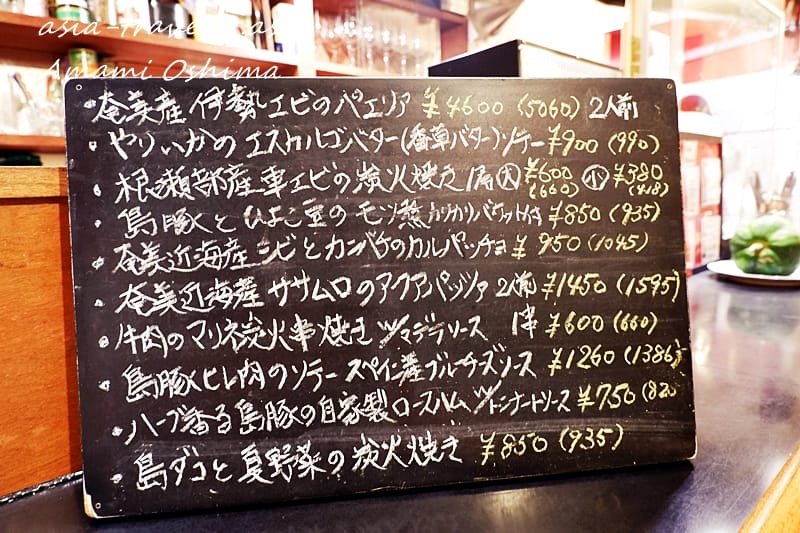 asia-travel
Amami Oshima
・奄美産 伊勢エビのパエリア ¥4600 (5060) 2人前
・やりいかの エスカルゴバター(香草バター)ソテー ¥900 (990)
・根瀬部産車エビの炭火焼き 1尾 大 ¥600 (660) 小 ¥380 (418)
・島豚とひよこ豆のモツ煮 カリカリバゲット付 ¥850 (935)
・奄美近海産 シビとカンパチのカルパッチョ ¥950 (1045)
・奄美近海産 ササムロのアクアパッツァ 2人前 ¥1450 (1595)
・牛肉のマリネ炭火串焼き マデラソース 1本 ¥600 (660)
・島豚ヒレ肉のソテー スペイン産ブルーチーズソース ¥1260 (1386)
・ハーブ香る島豚の自家製ロースハム トンナートソース ¥750 (82
・島ダコと夏野菜の炭火焼き ¥850 (935)